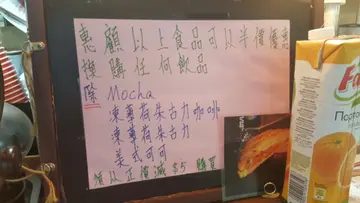 惠顧以上食品可以半價優惠
換購任何飲品
除 Mocha
凍華荷朱古力咖啡
凍華荷朱古力
美式可可
須以正價減 $5 購買